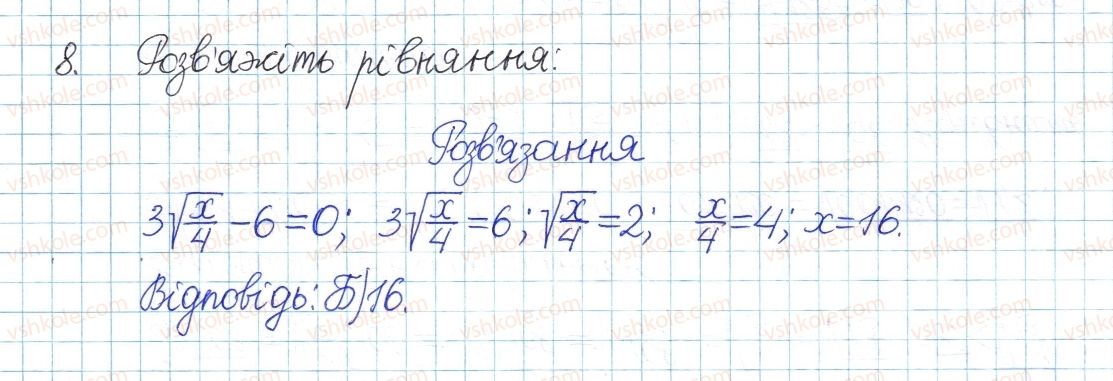 8. Розв'яжіть рівняння:
Розв'язання
3√(x/4) − 6 = 0; 3√(x/4) = 6; √(x/4) = 2; x/4 = 4; x = 16.
Відповідь: Б) 16.